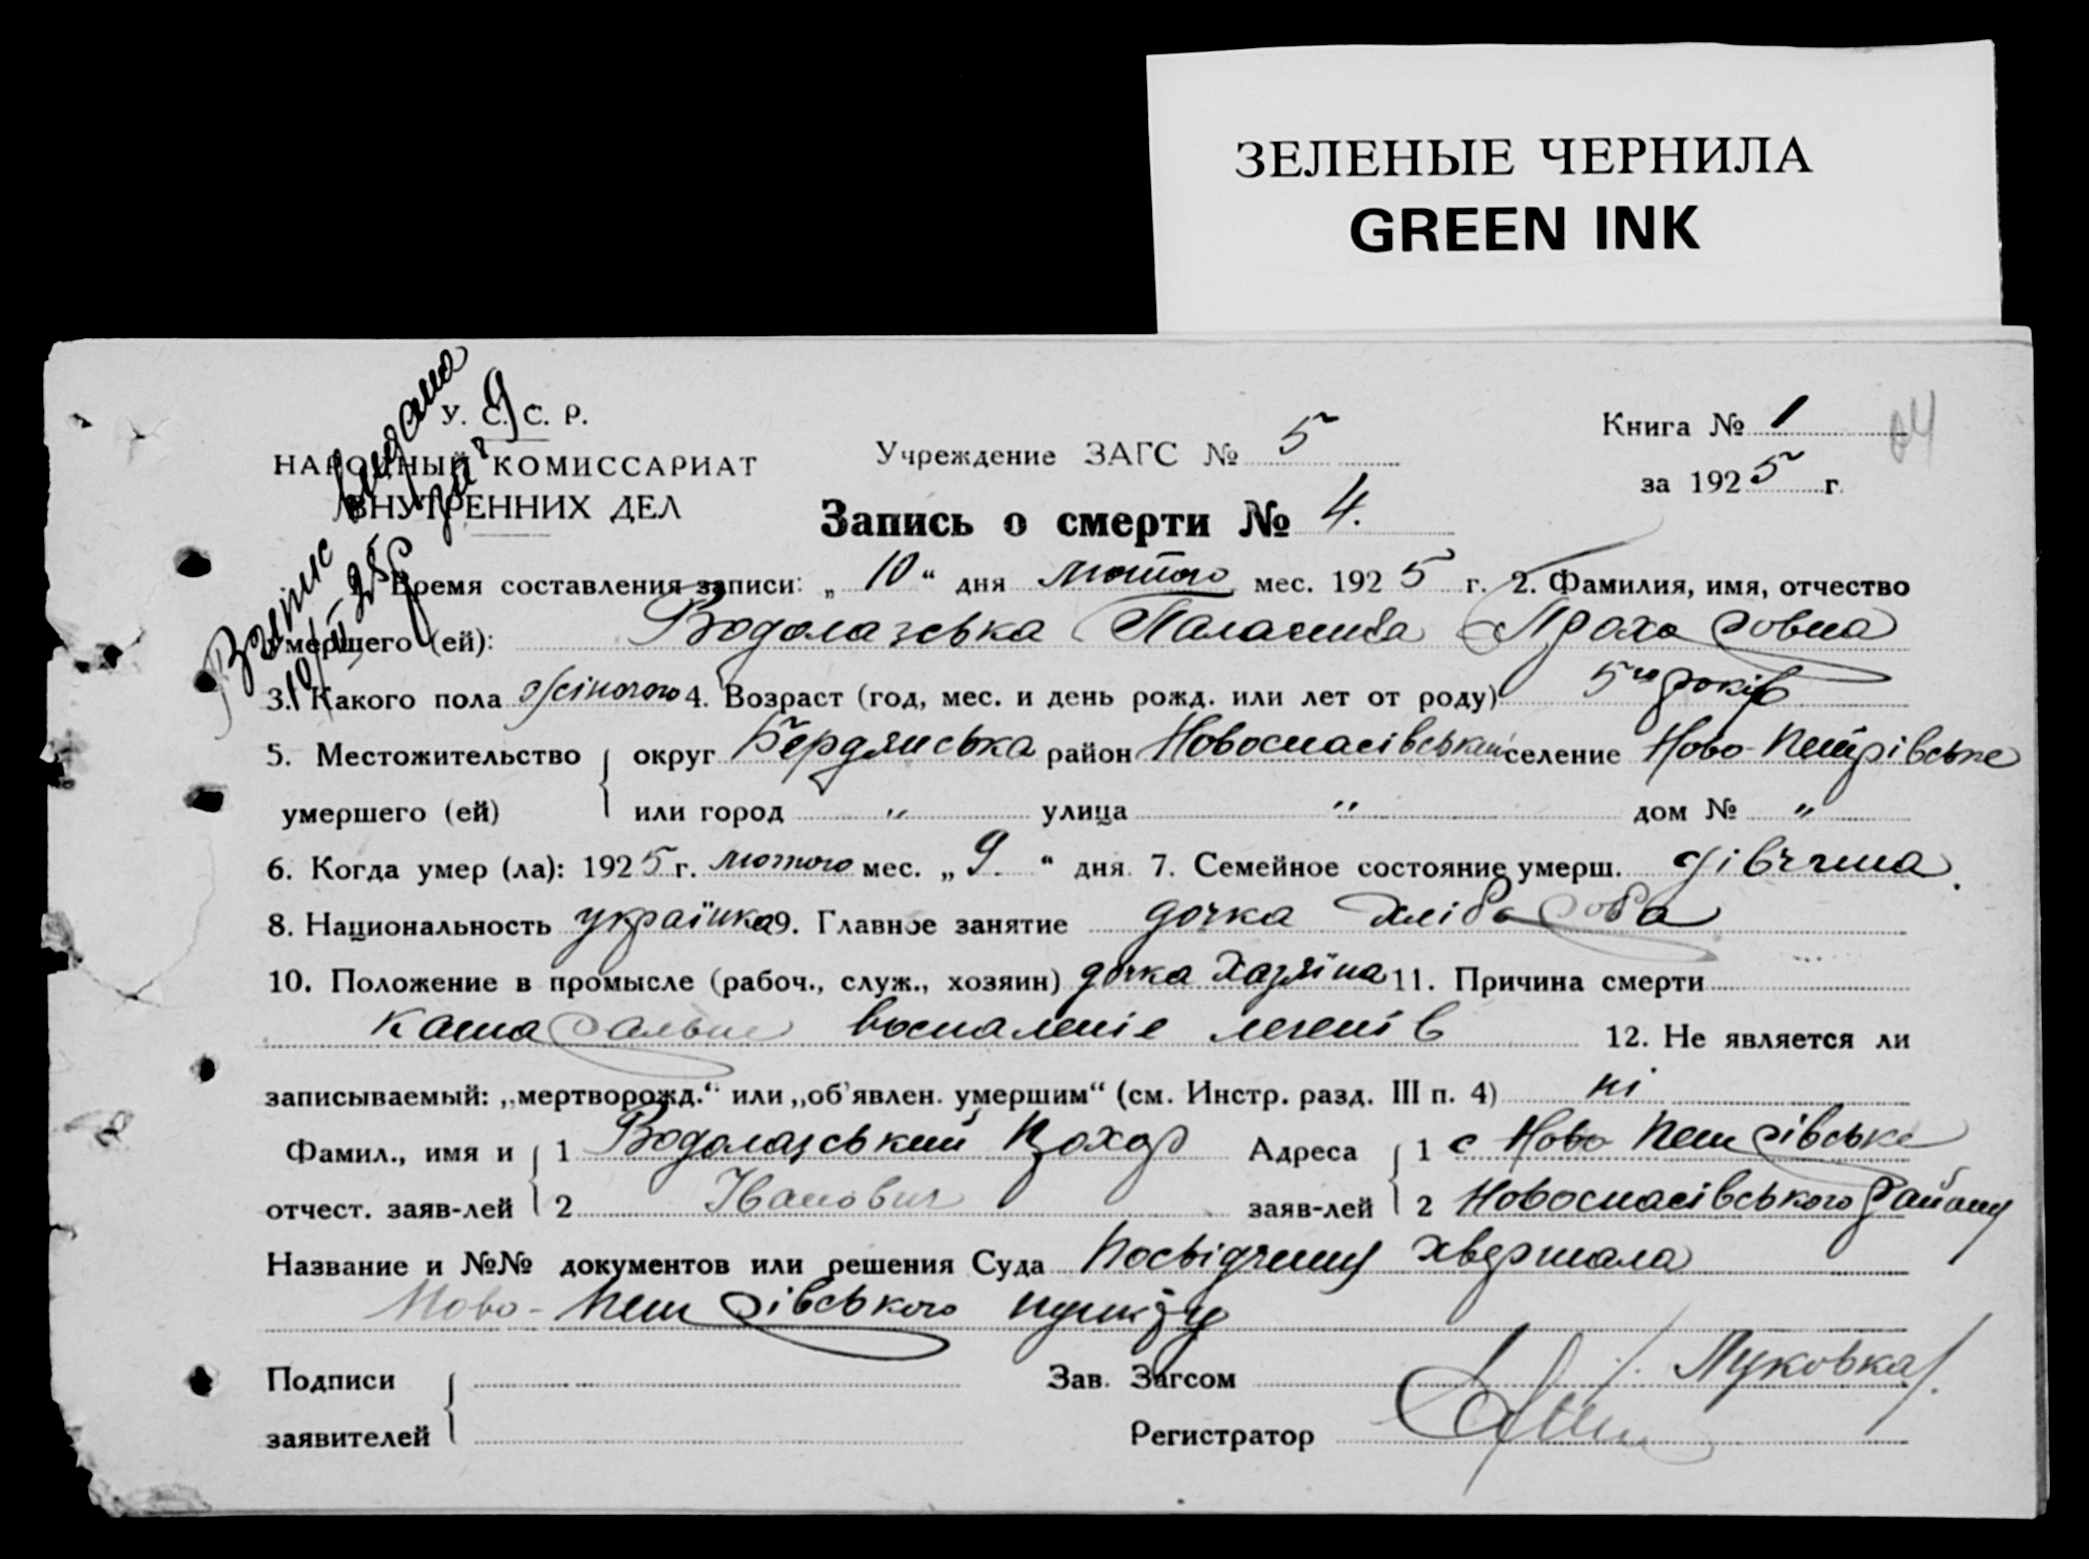 ЗЕЛЕНЫЕ ЧЕРНИЛА
GREEN INK
У. С. С. Р.
НАРОДНЫЙ КОМИССАРИАТ
ВНУТРЕННИХ ДЕЛ
Випис видана
10/II 25р за № 9
Учреждение ЗАГС № 5
Книга № 1
за 1925 г.
Запись о смерти № 4.
1. Время составления записи: „10“ дня лютого мес. 1925 г. 2. Фамилия, имя, отчество
умершего (ей): Водолазська Палагиея Прохоровна
3. Какого пола жіночого 4. Возраст (год, мес. и день рожд. или лет от роду) 5ти років
5. Местожительство округ Бердянська район Новоспасівський селение Ново-Петрівське
умершего (ей) или город " улица " дом № "
6. Когда умер (ла): 1925 г. лютого мес. „9.“ дня. 7. Семейное состояние умерш. дівчина.
8. Национальность українка 9. Главное занятие дочка хлібороба
10. Положение в промысле (рабоч., служ., хозяин) дочка хазяїна 11. Причина смерти
катаральне воспаленіе легенів 12. Не является ли
записываемый: „мертворожд.“ или „об'явлен. умершим“ (см. Инстр. разд. III п. 4) ні
Фамил., имя и 1 Водолазський Прохор Адреса 1 с Ново Петрівське
отчест. заяв-лей 2 Іванович заяв-лей 2 Новоспасівського району
Название и №№ документов или решения Суда Посвідчення хвершала
Ново-Петрівського пункту
Подписи Зав. Загсом /Луковка/.
заявителей Регистратор